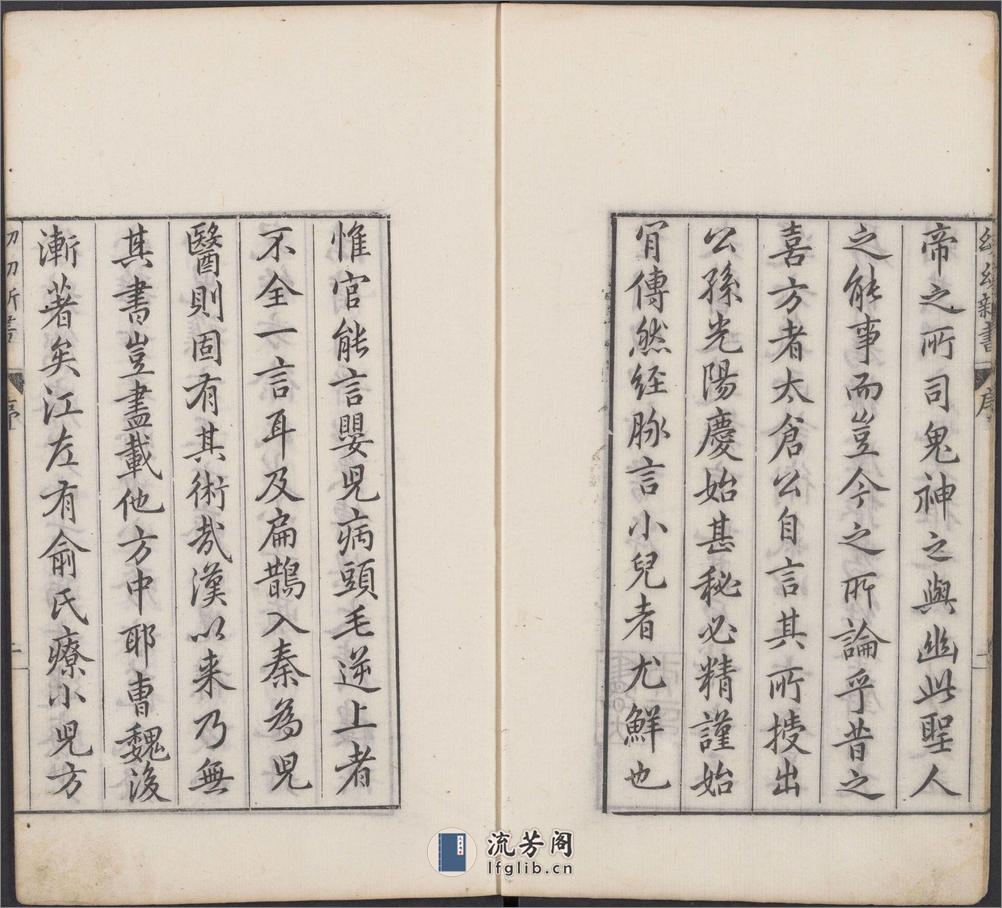 幼幼新書
序
二
帝之所司鬼神之與幽此聖人
之能事而豈今之所論乎昔之
喜方者太倉公自言其所授出
公孫光陽慶始甚秘必精謹始
肎傳然經脉言小兒者尤鮮也
惟官能言嬰児病頭毛逆上者
不全一言耳及扁鵲入秦為児
醫則固有其術哉漢以来乃無
其書豈盡載他方中耶曹魏後
漸著矣江左有俞氏療小児方
幼幼新書
序
二
流芳阁
lfglib.cn